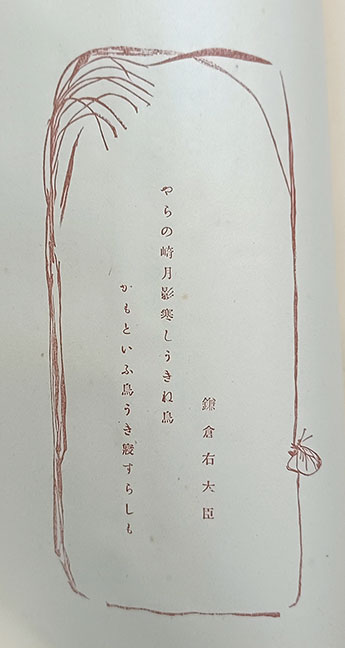 鎌倉右大臣
やらの崎月影寒しうきね鳥
かもといふ鳥うき寢すらしも